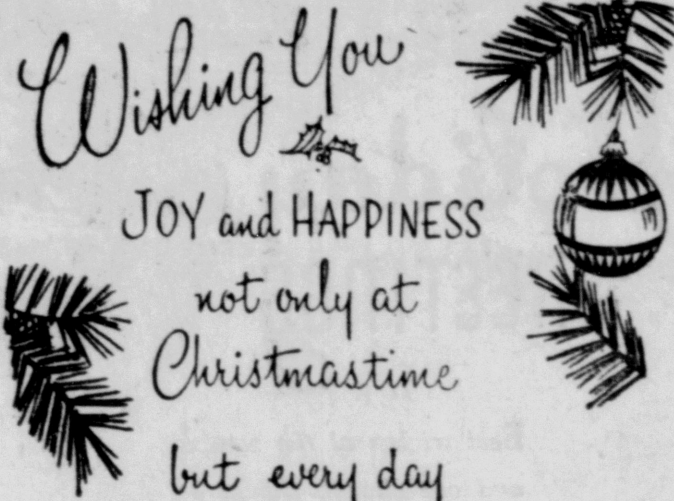 Wishing You
JOY and HAPPINESS
not only at
Christmastime
but every day